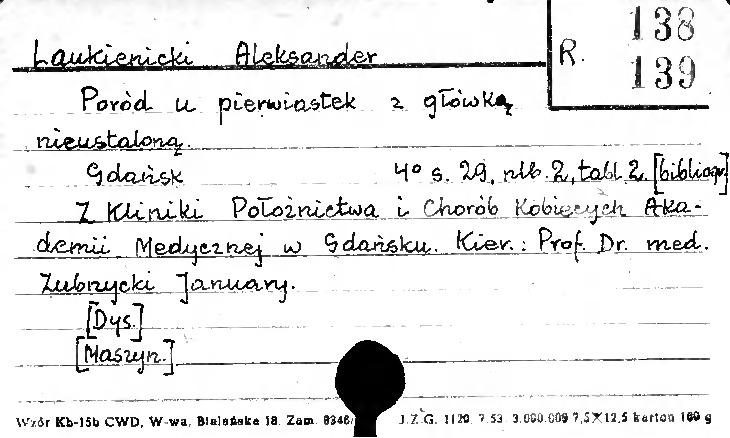 Laukienicki Aleksander
R. 138
139
Poród u pierwiastek z główką
nieustaloną.
Gdańsk 4° s. 29, nlb. 2, tabl. 2. [bibliogr.]
Z Kliniki Położnictwa i Chorób Kobiecych Aka-
demii Medycznej w Gdańsku. Kier.: Prof. Dr. med.
Zubrzycki January.
[Dys.]
[Maszyn.]
Wzór Kb-15b CWD, W-wa, Bielańska 18. Zam. 8346/ J.Z.G. 1120. 7.53. 3.000.009 7,5X12,5 karton 160 g